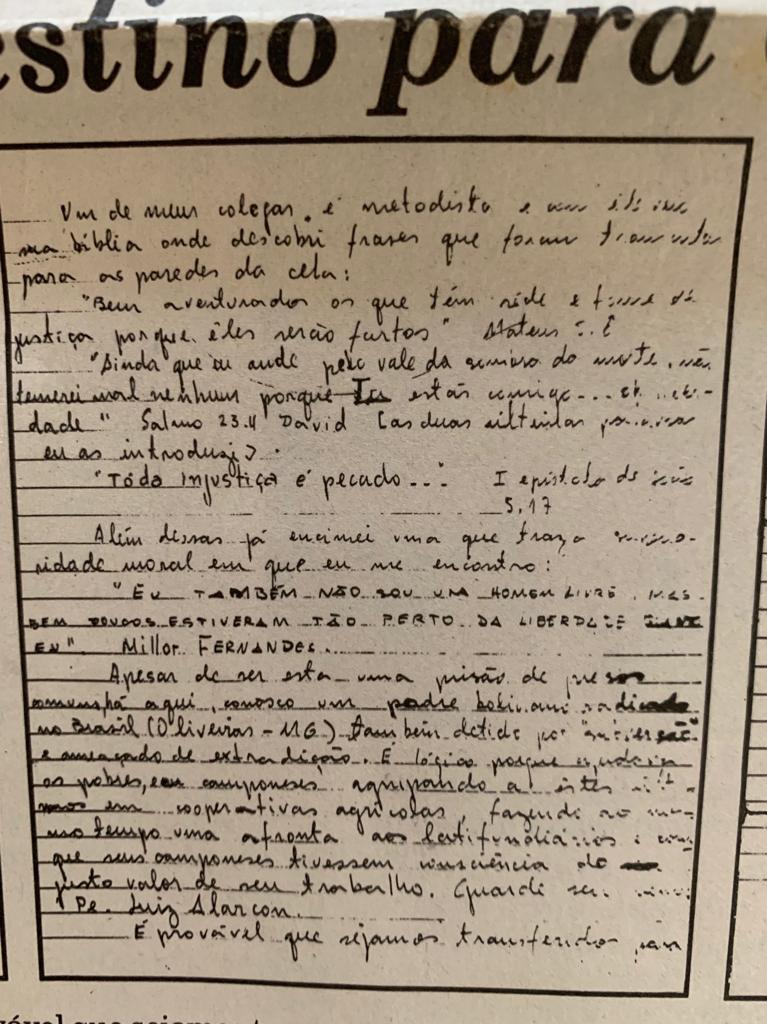 estino para
Um de meus colegas, é metodista e
ma bíblia onde descobri frases que foram
para as paredes da cela:
"Bem aventurados os que têm sede e fome de
justiça porque êles serão fartos" Mateus
"Ainda que eu ande pelo vale da sombra da morte, não
temerei mal nenhum porque Tu estás comigo...
dade" Salmo 23.4 David (as duas ultimas palavras
eu as introduzi).
"Toda Injustiça é pecado..." I epistola de João
5,17
Além dessas já encimei uma que traz a
ridade moral em que eu me encontro:
"EU TAMBÉM NÃO SOU UM HOMEM LIVRE. MAS
BEM POUCOS ESTIVERAM TÃO PERTO DA LIBERDADE
EU". Millor FERNANDES.
Apesar de ser esta uma prisão de presos
comuns, há aqui, conosco um padre boliviano radicado
no Brasil (Oliveiras - MG) também detido por "subversão"
e ameaçado de extradição. É lógico porque ajudara
os pobres, camponeses agrupando a êstes
em cooperativas agrícolas, fazendo ao mes-
mo tempo uma afronta aos latifundiários e
que seus camponeses tivessem consciência do
justo valor de seu trabalho. Guarde seu
Pe. Luiz Alarcon.
É provável que sejamos transferidos para